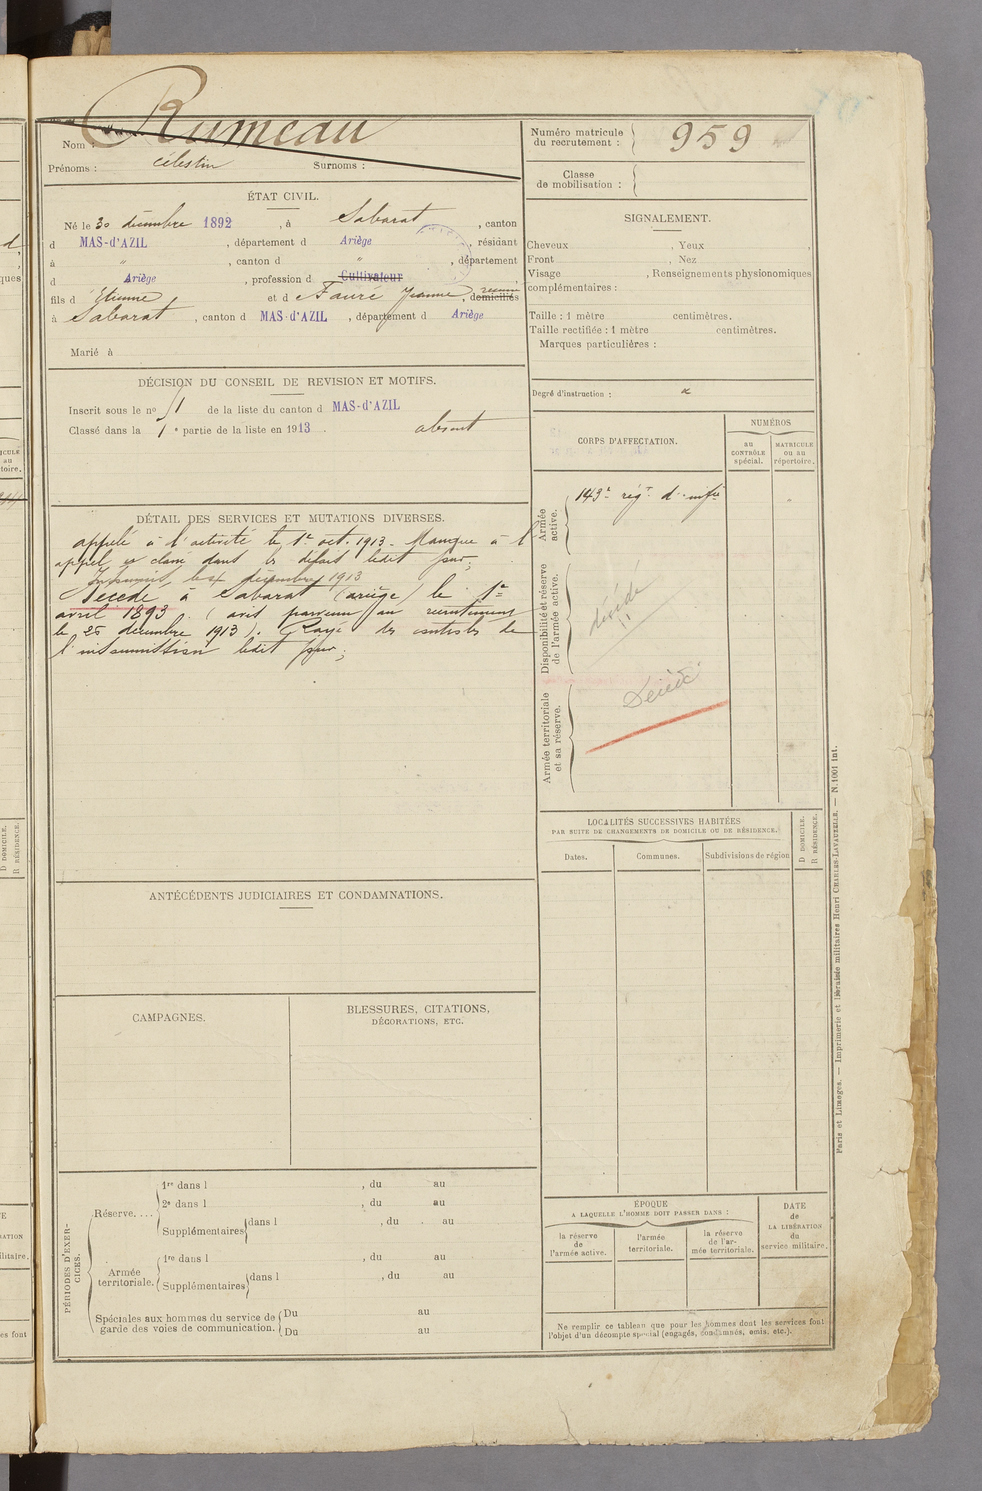 Rumeau
Nom :
Prénoms : célestin Surnoms :
Numéro matricule du recrutement : 959
Classe de mobilisation :
ÉTAT CIVIL.
Né le 30 décembre 1892, à Sabarat, canton
d MAS-d'AZIL, département d Ariège, résidant
à " , canton d " , département
d Ariège, profession d Cultivateur
fils d Etienne et d Fauré Jeanne, domiciliés
à Sabarat, canton d MAS-d'AZIL, département d Ariège
Marié à
SIGNALEMENT.
Cheveux , Yeux ,
Front , Nez
Visage , Renseignements physionomiques
complémentaires :
Taille : 1 mètre centimètres.
Taille rectifiée : 1 mètre centimètres.
Marques particulières :
DÉCISION DU CONSEIL DE REVISION ET MOTIFS.
Inscrit sous le no 51 de la liste du canton d MAS-d'AZIL
Classé dans la 1e partie de la liste en 1913. absent
Degré d'instruction :
CORPS D'AFFECTATION.
NUMÉROS
au CONTRÔLE spécial.
MATRICULE ou au répertoire.
Armée active.
143e régt d'infie
Disponibilité et réserve de l'armée active.
décédé
Armée territoriale et sa réserve.
Décédé
DÉTAIL DES SERVICES ET MUTATIONS DIVERSES.
appelé à l'activité le 1er oct. 1913. Manque à l'
appel et classé dans les défaut ledit jour;
Insoumis le 4 décembre 1913
Décédé à Sabarat (ariège) le 1er
avril 1893. (avis parvenu au recrutement
le 26 décembre 1913). Rayé des contrôles de
l'insoumission ledit jour;
LOCALITÉS SUCCESSIVES HABITÉES
PAR SUITE DE CHANGEMENTS DE DOMICILE OU DE RÉSIDENCE.
Dates.
Communes.
Subdivisions de région
D DOMICILE.
R RÉSIDENCE.
ANTÉCÉDENTS JUDICIAIRES ET CONDAMNATIONS.
CAMPAGNES.
BLESSURES, CITATIONS,
DÉCORATIONS, ETC.
PÉRIODES D'EXERCICES.
Réserve....
1re dans l , du au
2e dans l , du au
Supplémentaires dans l , du au
Armée territoriale.
1re dans l , du au
Supplémentaires dans l , du au
Spéciales aux hommes du service de Du au
garde des voies de communication. Du au
ÉPOQUE
A LAQUELLE L'HOMME DOIT PASSER DANS :
la réserve de l'armée active.
l'armée territoriale.
la réserve de l'armée territoriale.
DATE de LA LIBÉRATION du service militaire.
Ne remplir ce tableau que pour les hommes dont les services font
l'objet d'un décompte spécial (engagés, condamnés, omis, etc.).
Paris et Limoges. — Imprimerie et librairie militaires Henri CHARLES-LAVAUZELLE. — N. 1001 int.